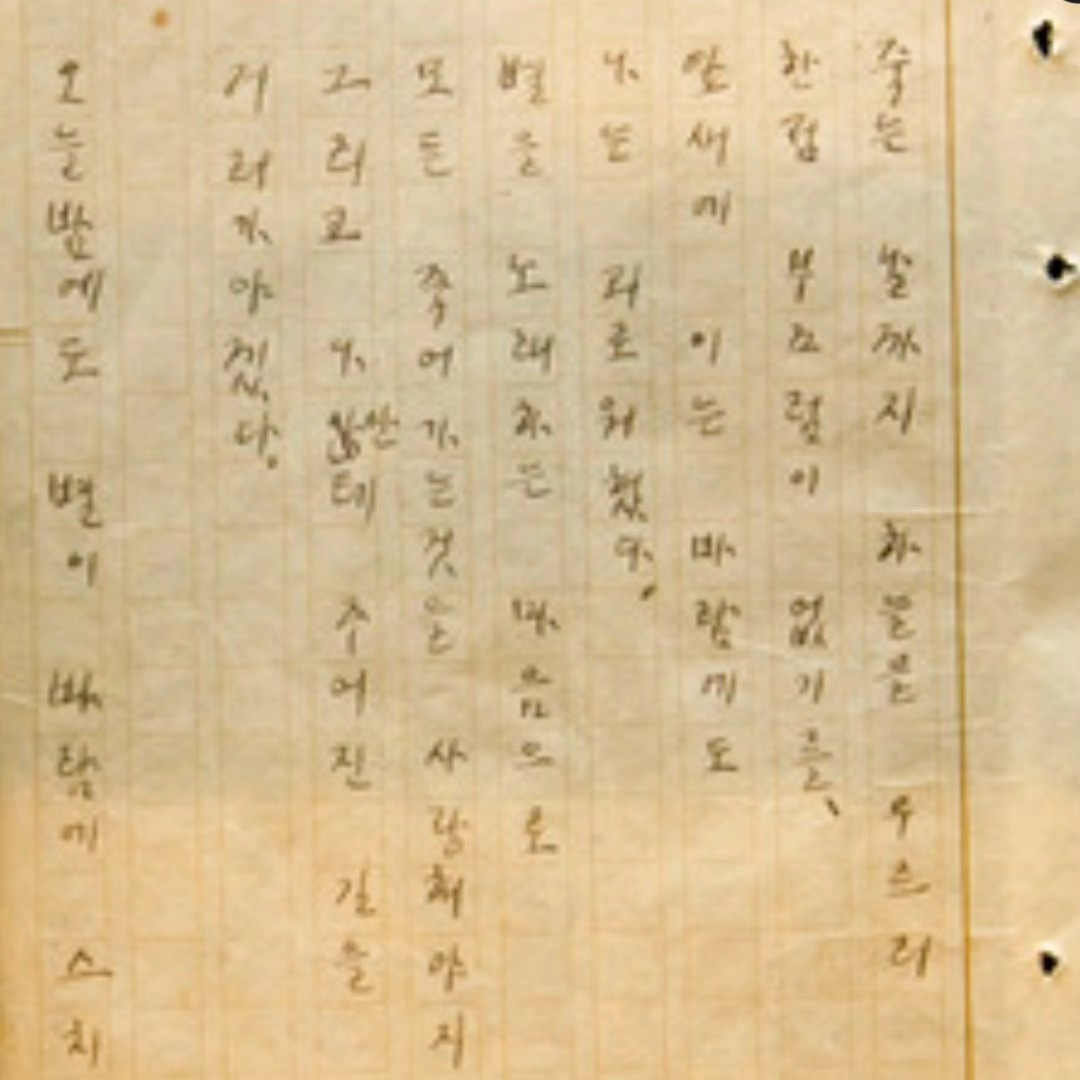 죽는 날까지 하늘을 우르러
한점 부끄럼이 없기를、
잎새에 이는 바람에도
나는 괴로워했다.
별을 노래하는 마음으로
모든 죽어가는것을 사랑해야지
그리고 나한테 주어진 길을
거러가야겠다.
오늘밤에도 별이 바람에 스치